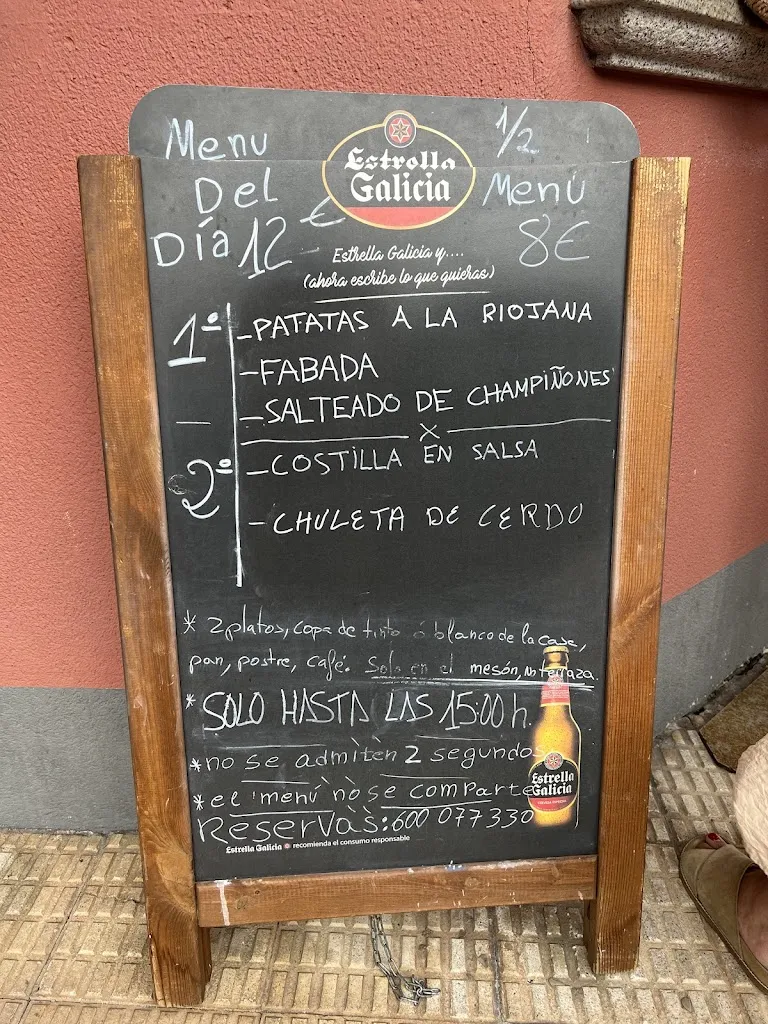 Menu
Del
Día 12 €
Estrella
Galicia
1/2
Menú
8€
Estrella Galicia y....
(ahora escribe lo que quieras)
1º
- PATATAS A LA RIOJANA
- FABADA
- SALTEADO DE CHAMPIÑONES
x
2º
- COSTILLA EN SALSA
- CHULETA DE CERDO
* 2 platos, copa de tinto ó blanco de la casa,
pan, postre, café. Solo en el mesón, no terraza.
* SOLO HASTA LAS 15:00 h.
* no se admiten 2 segundos
* el menú no se comparte
Reservas: 600 077 330
Estrella
Galicia
CERVEZA ESPECIAL
Estrella Galicia recomienda el consumo responsable